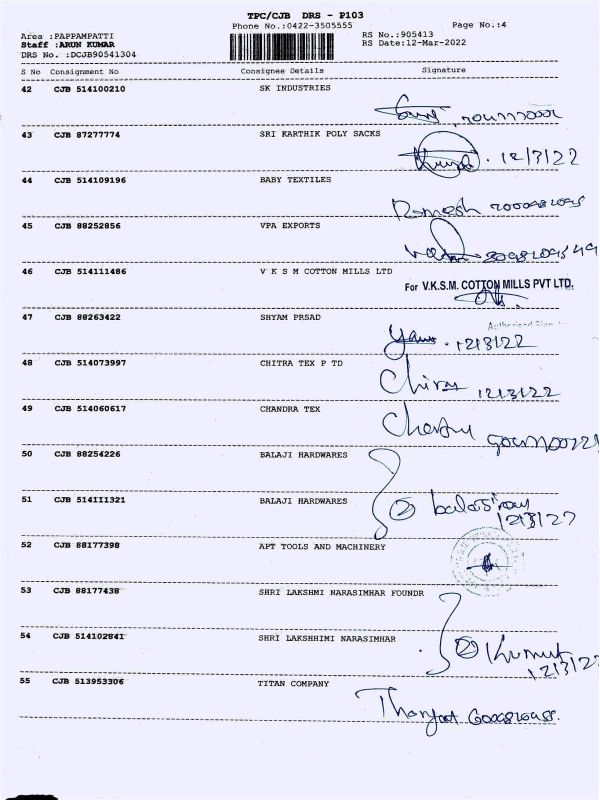 TPC/CJB DRS - P103
Phone No.:0422-3505555
Page No.:4
Area :PAPPAMPATTI
Staff :ARUN KUMAR
DRS No. :DCJB90541304
RS No.:905413
RS Date:12-Mar-2022
S No Consignment No Consignee Details Signature
42 CJB 514100210 SK INDUSTRIES
43 CJB 87277774 SRI KARTHIK POLY SACKS
12/3/22
44 CJB 514109196 BABY TEXTILES
Ramesh
45 CJB 88252856 VPA EXPORTS
46 CJB 514111486 V K S M COTTON MILLS LTD
For V.K.S.M. COTTON MILLS PVT LTD.
47 CJB 88263422 SHYAM PRSAD
12/3/22
48 CJB 514073997 CHITRA TEX P TD
12/3/22
49 CJB 514060617 CHANDRA TEX
50 CJB 88254226 BALAJI HARDWARES
51 CJB 514111321 BALAJI HARDWARES
2
12/3/22
52 CJB 88177398 APT TOOLS AND MACHINERY
53 CJB 88177438 SHRI LAKSHMI NARASIMHAR FOUNDR
54 CJB 514102841 SHRI LAKSHHIMI NARASIMHAR
2
12/3/22
55 CJB 513953306 TITAN COMPANY